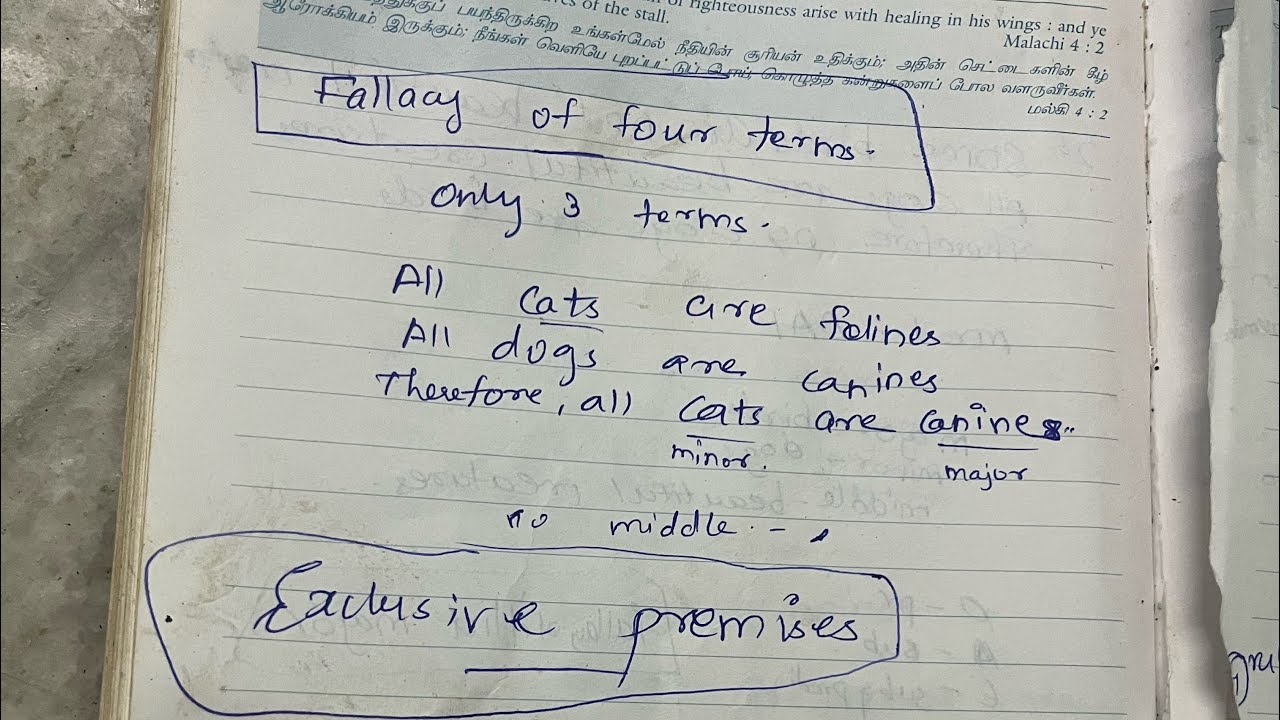 of righteousness arise with healing in his wings : and ye
of the stall.
Malachi 4 : 2
பயந்திருக்கிற உங்கள்மேல் நீதியின் சூரியன் உதிக்கும்; அதின் செட்டைகளின் கீழ்
ஆரோக்கியம் இருக்கும்; நீங்கள் வெளியே புறப்பட்டுப் போய், கொழுத்த கன்றுகளைப் போல வளருவீர்கள்.
மல்கி 4 : 2
Fallacy of four terms.
Only 3 terms.
All cats are felines
All dogs are canines
Therefore, all cats are canines..
minor. major
no middle. -
Exclusive premises